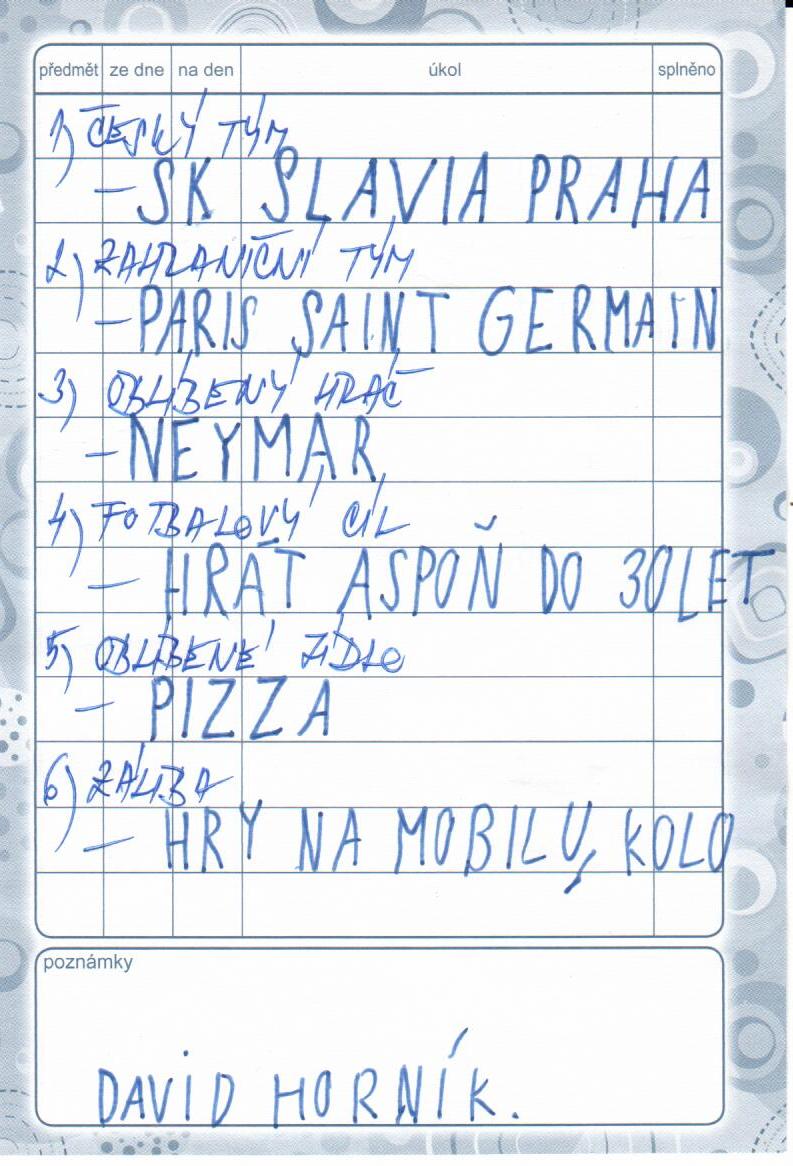 předmět ze dne na den úkol splněno
1) ČESKÝ TÝM
- SK SLAVIA PRAHA
2) ZAHRANIČNÍ TÝM
- PARIS SAINT GERMAIN
3) OBLÍBENÝ HRÁČ
- NEYMAR
4) FOTBALOVÝ CÍL
- HRÁT ASPOŇ DO 30 LET
5) OBLÍBENÉ JÍDLO
- PIZZA
6) ZÁLIBA
- HRY NA MOBILU, KOLO
poznámky
DAViD HORNÍK.